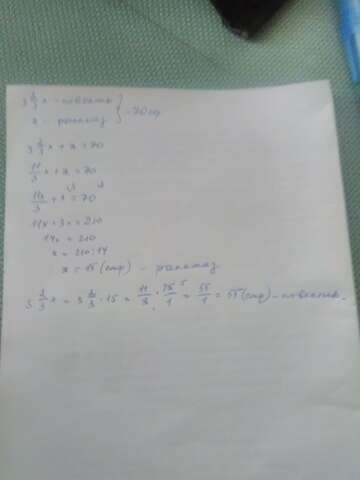 3 2/3 x - повесть } = 70 стр
x - рассказ
3 2/3 x + x = 70
11/3 x + x = 70
11x/3 + x = 70
11x + 3x = 210
14x = 210
x = 210 : 14
x = 15 (стр) - рассказ
3 2/3 x = 3 2/3 · 15 = 11/3 · 15/1 = 55/1 = 55 (стр) - повесть.